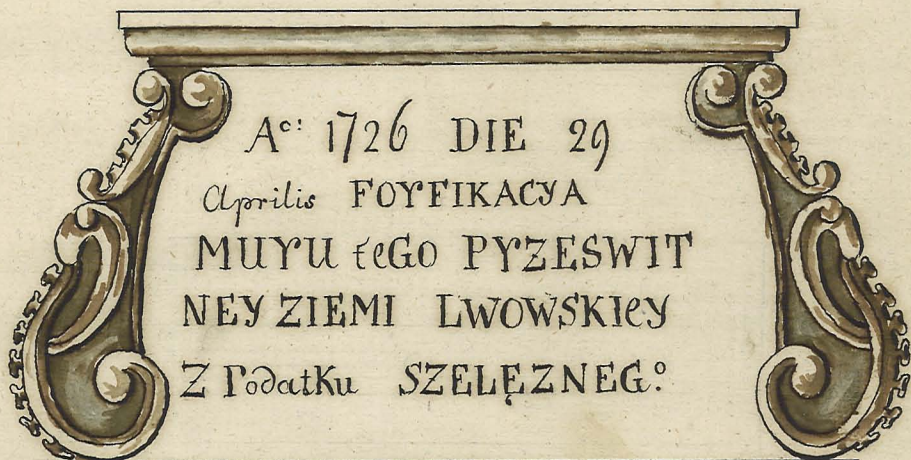 Ao: 1726 DIE 29
Aprilis FOYFIKACYA
MUYU teGO PYZESWIT
NEY ZIEMI LWOWSKIeY
Z Podatku SZELĘZNEGo